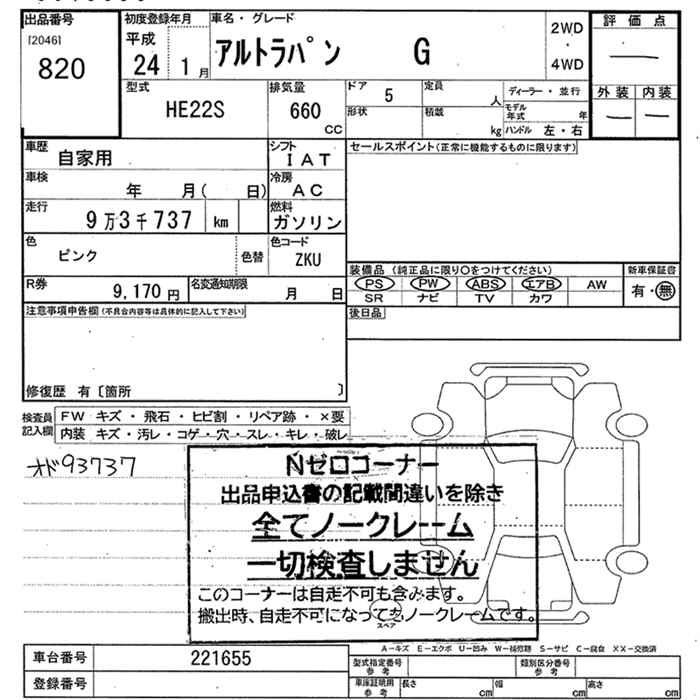 出品番号
[2046]
820
初度登録年月
平成
24 1月
車名・グレード
アルトラパン G
2WD
・
4WD
評価点
—
外装 内装
— —
型式
HE22S
排気量
660
CC
ドア 5
定員 人
形状
積載 kg
ディーラー・並行
モデル年式 年
ハンドル 左・右
車歴
自家用
シフト
IAT
車検
年 月( 日)
冷房
AC
走行
9万3千737 km
燃料
ガソリン
色
ピンク
色替
色コード
ZKU
R券
9,170円
名変通知期限
月 日
セールスポイント(正常に機能するものに限ります)
装備品(純正品に限り○をつけてください)
新車保証書
PS PW ABS エアB AW
SR ナビ TV カワ
有・無
後日品
注意事項申告欄(不具合内容等は具体的に記入して下さい)
修復歴 有〔箇所 〕
検査員記入欄
FW キズ・飛石・ヒビ割・リペア跡・×要
内装 キズ・汚レ・コゲ・穴・スレ・キレ・破レ
オド93737
Nゼロコーナー
出品申込書の記載間違いを除き
全てノークレーム
一切検査しません
このコーナーは自走不可も含みます。
搬出時、自走不可になってもノークレームです。
スペア
A−キズ E−エクボ U−凹み W−補修跡 S−サビ C−腐食 XX−交換済
車台番号
221655
登録番号
型式指定番号
参考
類別区分番号
参考
車庫証明用
参考
長さ cm 幅 cm 高さ cm